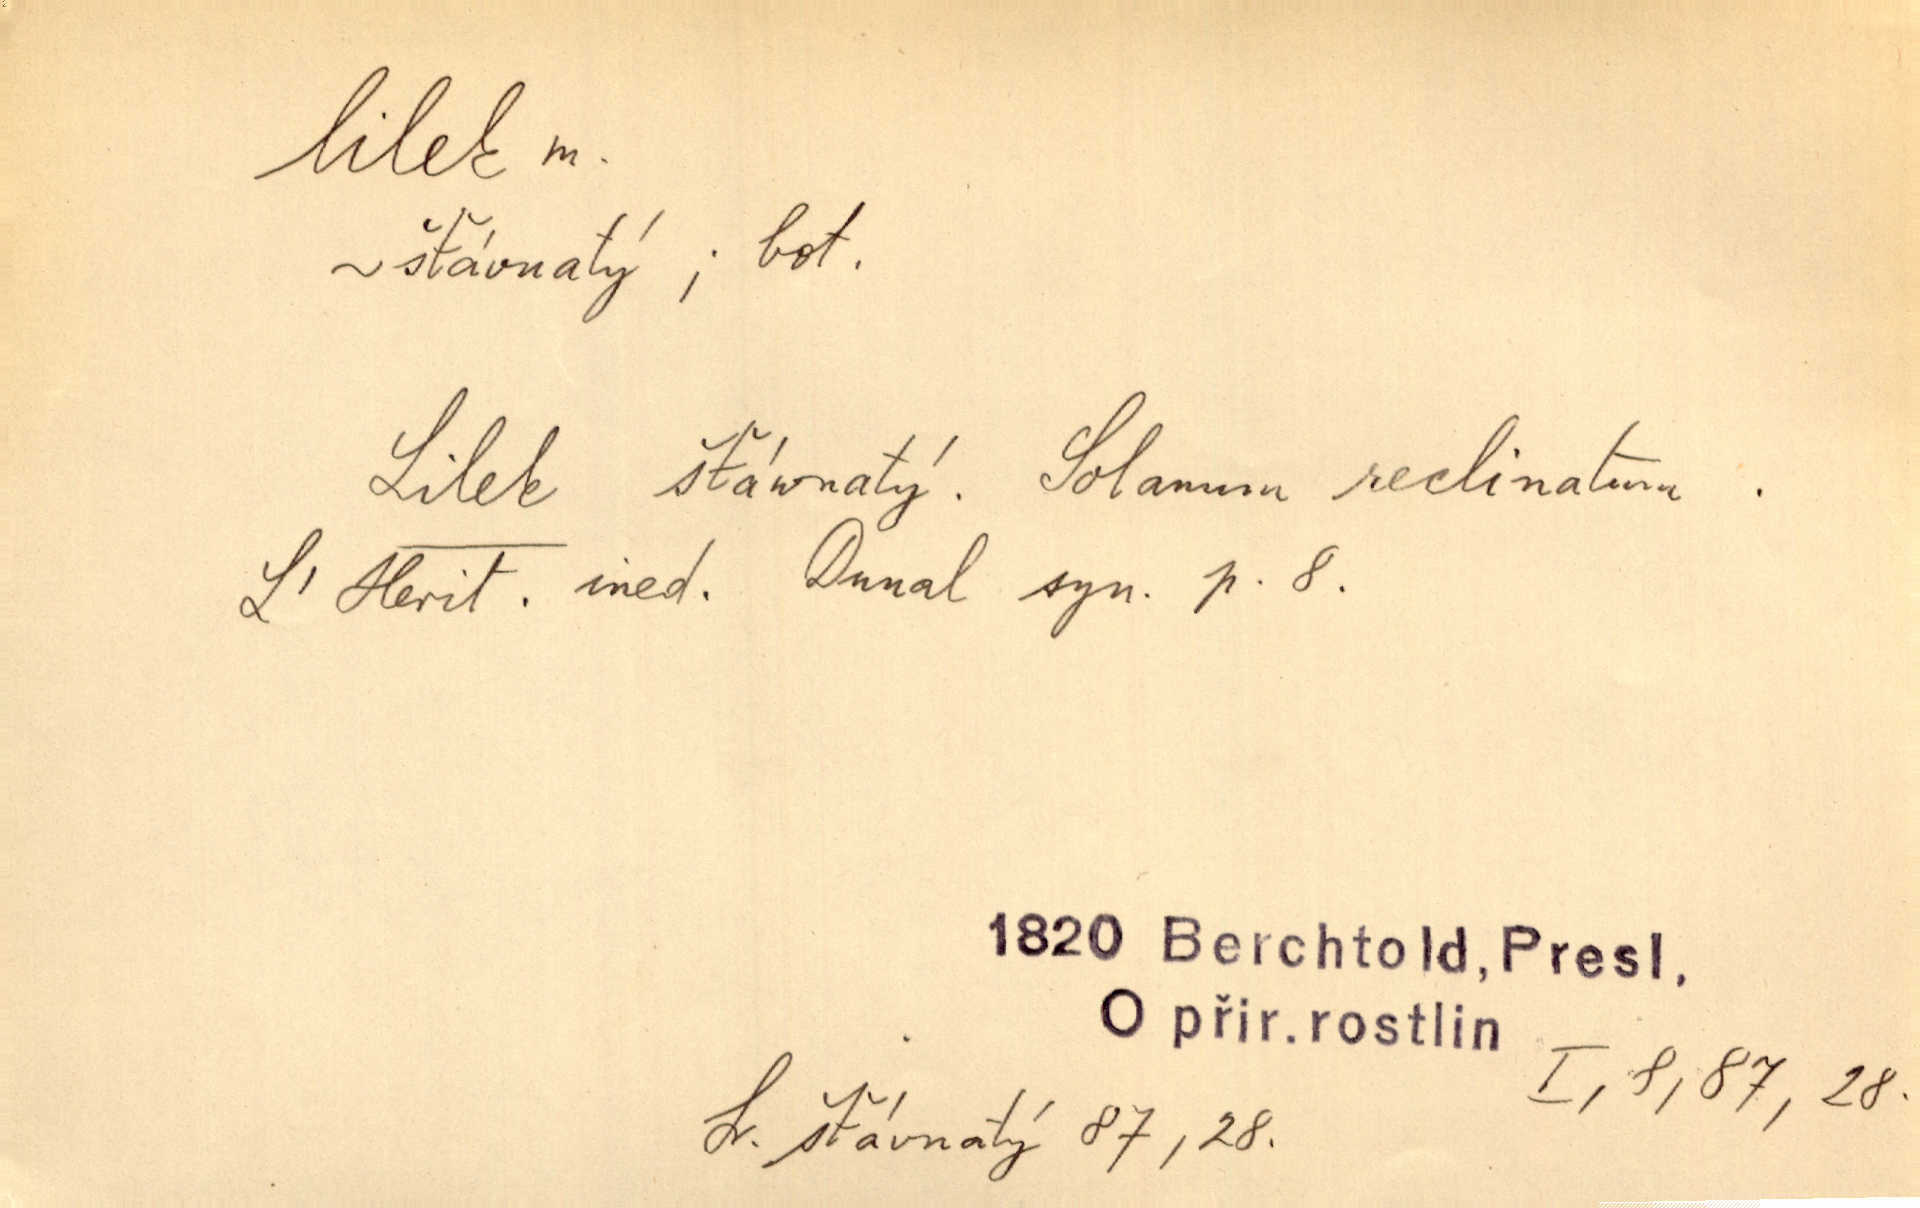 lilek m.
~ šťávnatý ; bot.
Lilek šťáwnatý. Solanum reclinatum .
L' Herit. ined. Dunal syn. p. 8.
1820 Berchtold, Presl,
O přir. rostlin
I, 8, 87, 28.
L. šťávnatý 87, 28.